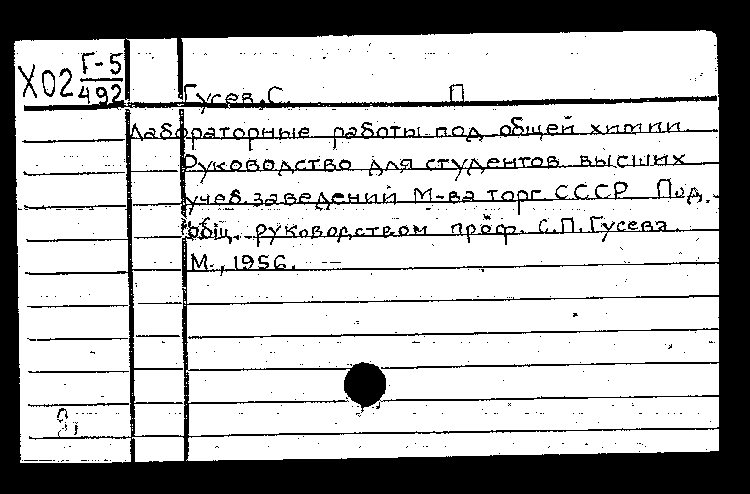 Х02 Г-5
492
Гусев, С. П
Лабораторные работы под общей химии.
Руководство для студентов высших
учеб. заведений М-ва торг. СССР Под.
общ. руководством проф. С.П. Гусева.
М., 1956. —